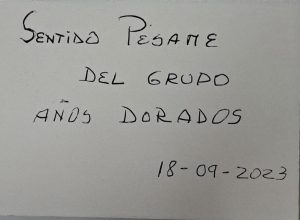 SENTIDO PÉSAME
DEL GRUPO
AÑOS DORADOS
18-09-2023